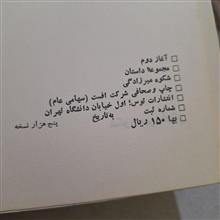 □ آغاز دوم
□ مجموعه داستان
□ شکوه میرزادگی
□ چاپ وصحافی شرکت افست (سهامی عام)
□ انتشارات توس؛ اول خیابان دانشگاه تهران
□ شماره ثبت به‌تاریخ
□ بها ۱۵۰ ریال پنج هزار نسخه